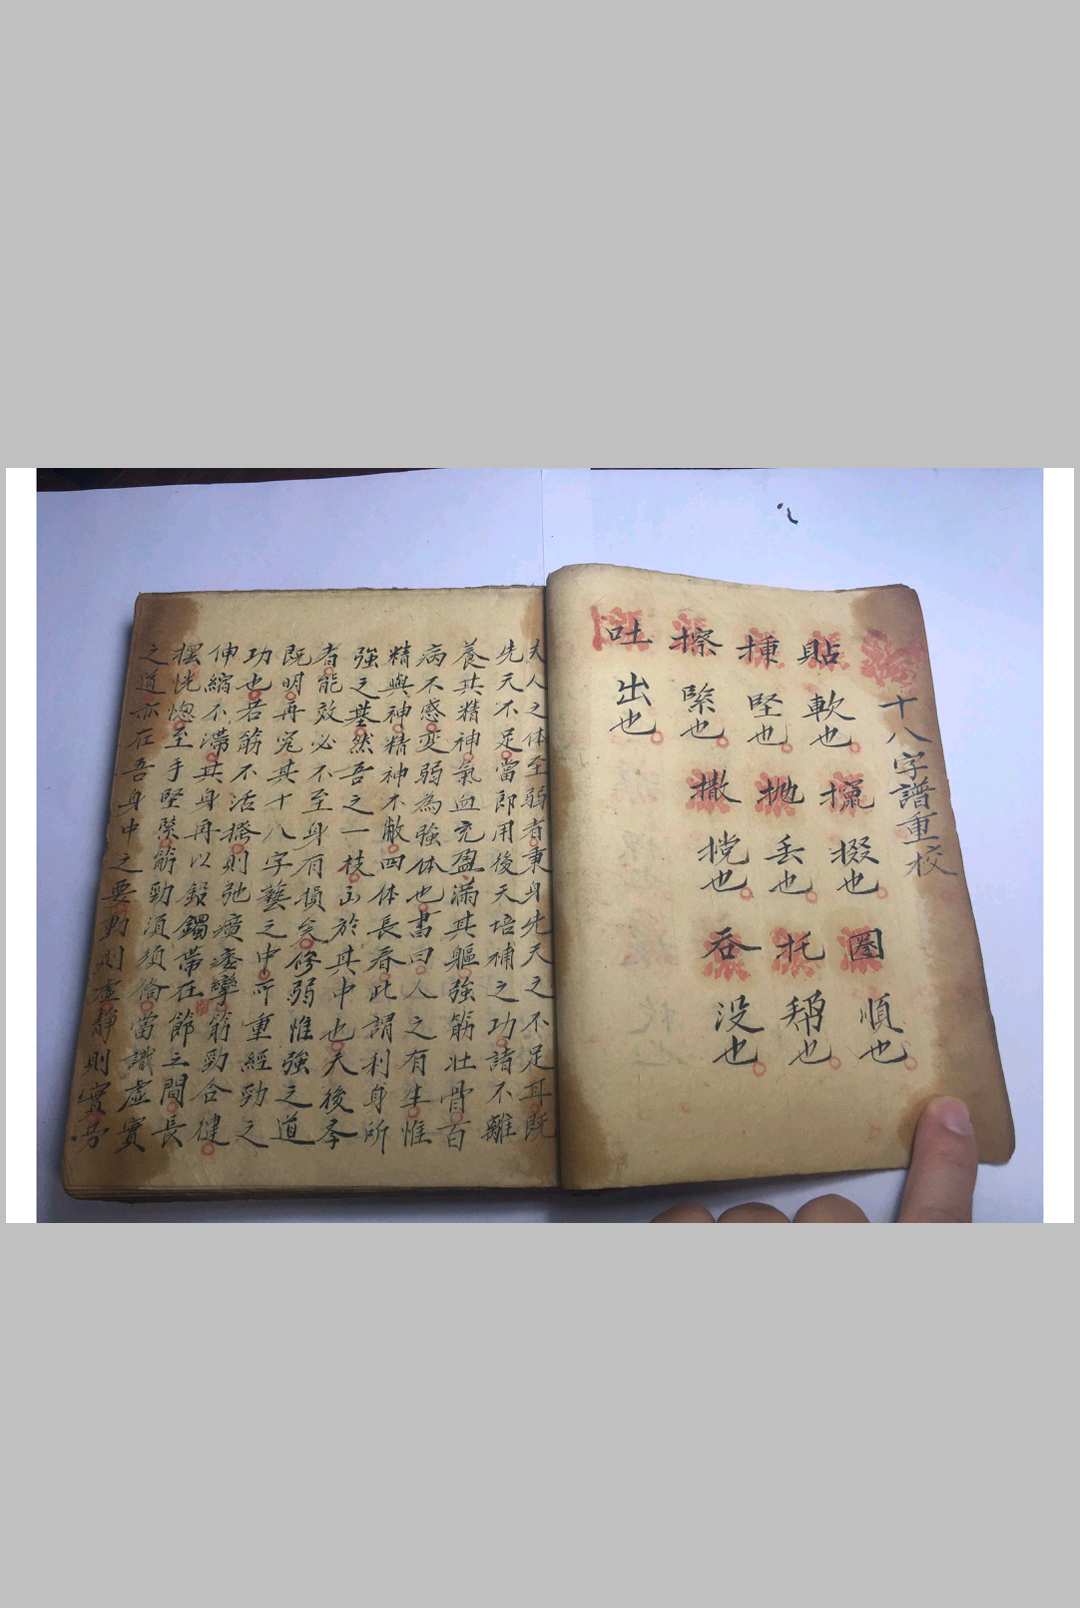 十八字譜重校
貼 軟也 攂 掇也 圈 順也
揰 堅也 拋 丢也 托 稱也
擦 緊也 撒 㧯也 吞 没也
吐 出也
夫人之体至弱者秉身先天之不足耳既
先天不足當即用後天培補之功諸不離
養其精神氣血充盈滿其軀強筋壯骨百
病不感变弱為強体也書曰人之有生惟
精與神精神不敝四体長春此謂利身所
強之基然吾之一枝出於其中也夭後孝
者能效必不至身有損矣修弱惟強之道
既明再究其十八字藝之中所重經勁之
功也若筋不活擦則弛癀痿孿筋勁合健
伸縮不滯其身再以鍛鐲帶在節之間長
摆恍惚至手堅緊筋勁須須偹當識虛實
之道亦在吾身中之要動則虛静則實